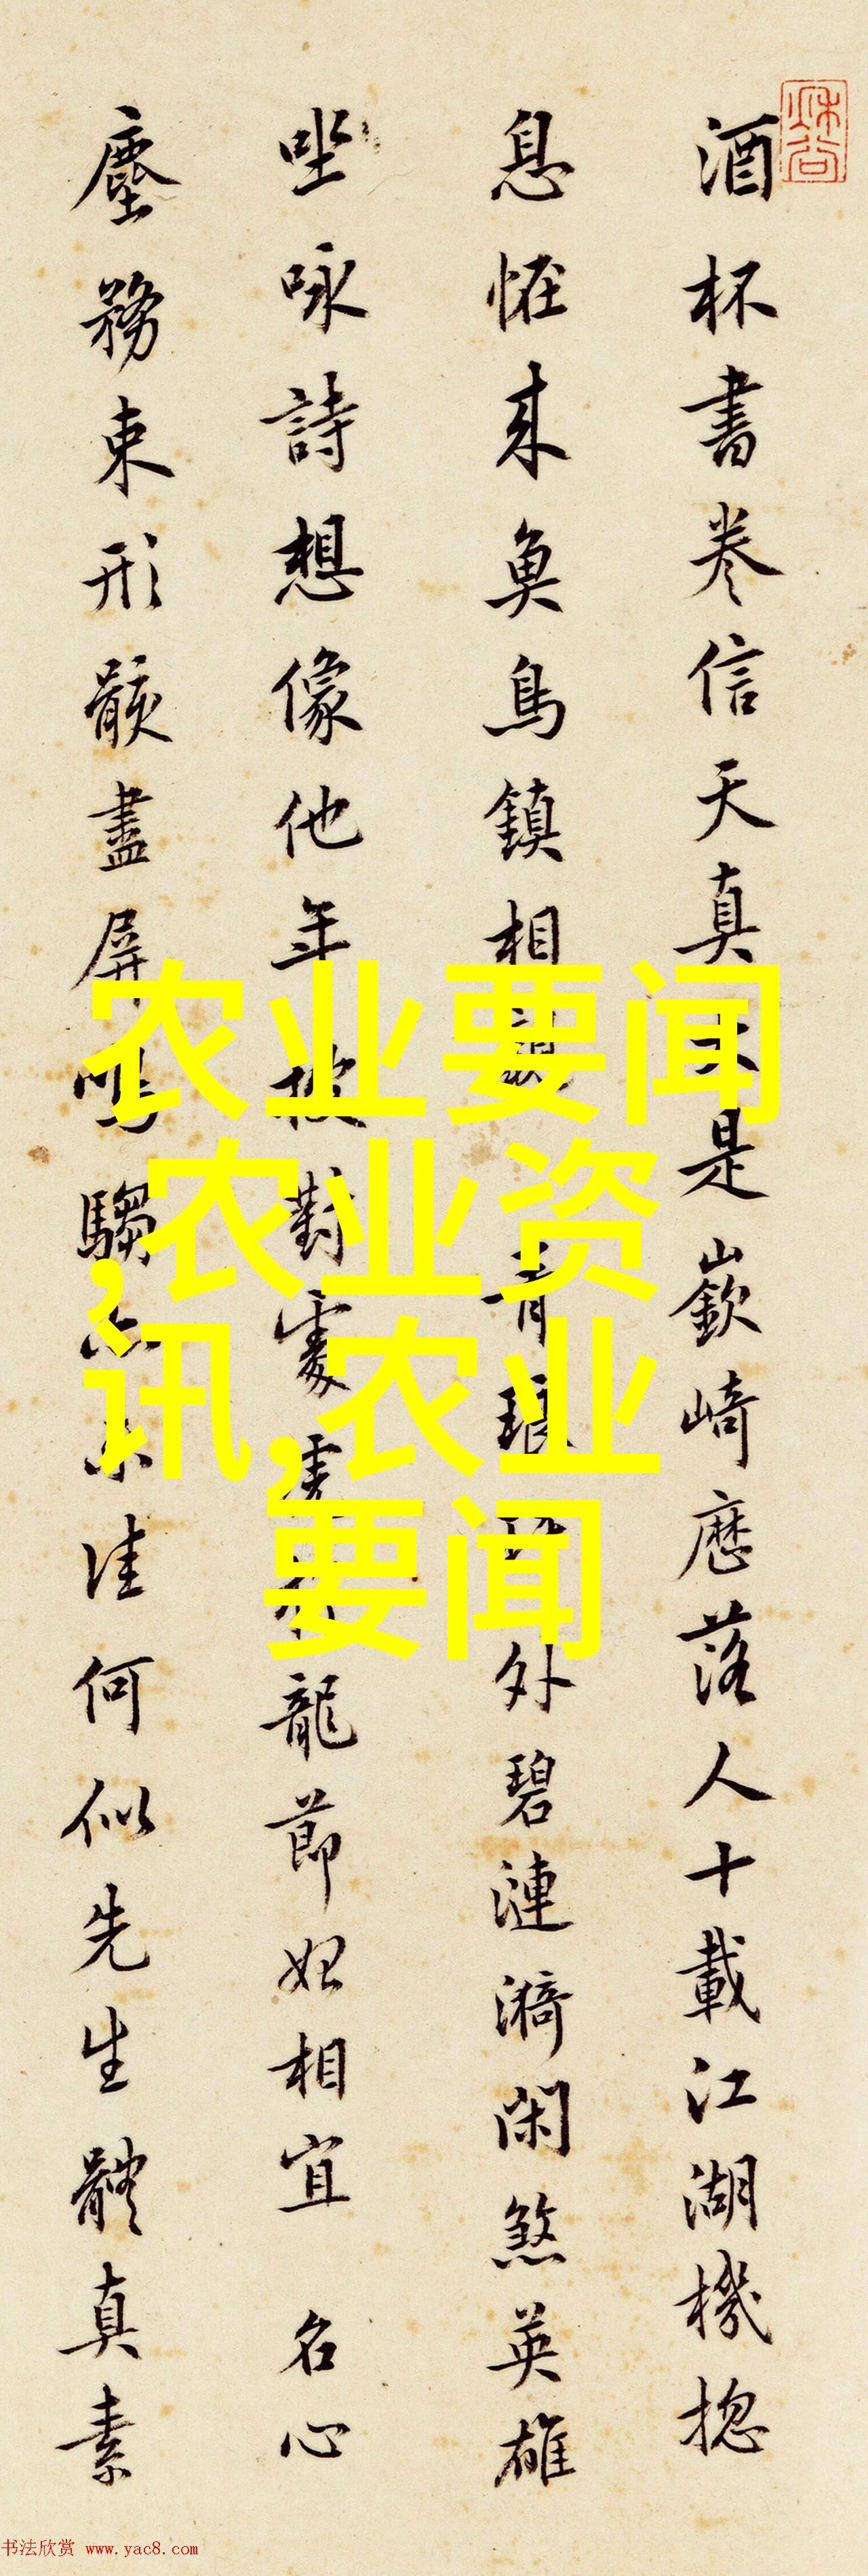 酒杯書卷信天真是嶔崎歷落人十載江湖機揔
息恠来魚鳥鎮相青琅外碧漣漪閑煞英雄
坐咏詩想像他年披對處龍節相宜名心
塵務束形骸盡屏鳴騶佳何似先生體真素
农业要闻
,农业资
讯,农业
要闻
书法欣赏 www.yac8.com